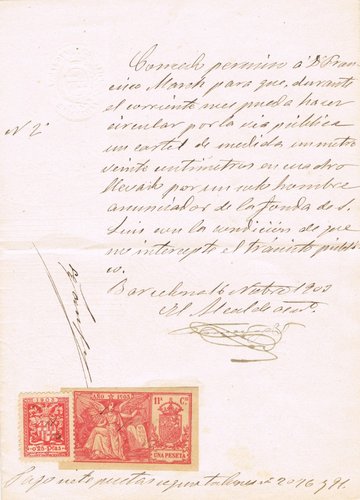 Concedo permiso á Dn Fran-
cisco March para que, durante
el corriente mes pueda hacer
circular por la via pública
Nº 2
un cartel de medida un metro
veinte centímetros en cuadro
llevado por un solo hombre
anunciador de la fonda de S.
Luis con la condición de que
no intercepte el tránsito públi-
co.
Barcelona 16 Novbre 1903
El Alcalde
1903
AÑO DE 1903
11ª Cs
UNA PESETA
Pagó siete pesetas